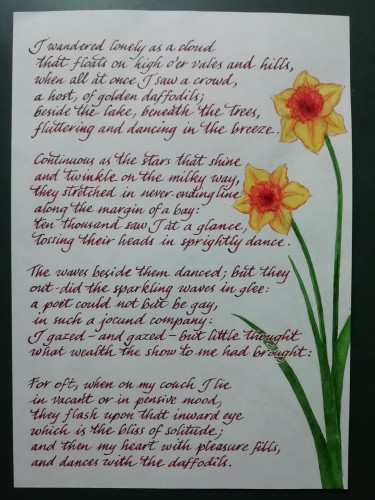 I wandered lonely as a cloud
that floats on high o'er vales and hills,
when all at once I saw a crowd,
a host, of golden daffodils;
beside the lake, beneath the trees,
fluttering and dancing in the breeze.
Continuous as the stars that shine
and twinkle on the milky way,
they stretched in never-ending line
along the margin of a bay:
ten thousand saw I at a glance,
tossing their heads in sprightly dance.
The waves beside them danced; but they
out-did the sparkling waves in glee:
a poet could not but be gay,
in such a jocund company:
I gazed - and gazed - but little thought
what wealth the show to me had brought:
For oft, when on my couch I lie
in vacant or in pensive mood,
they flash upon that inward eye
which is the bliss of solitude;
and then my heart with pleasure fills,
and dances with the daffodils.